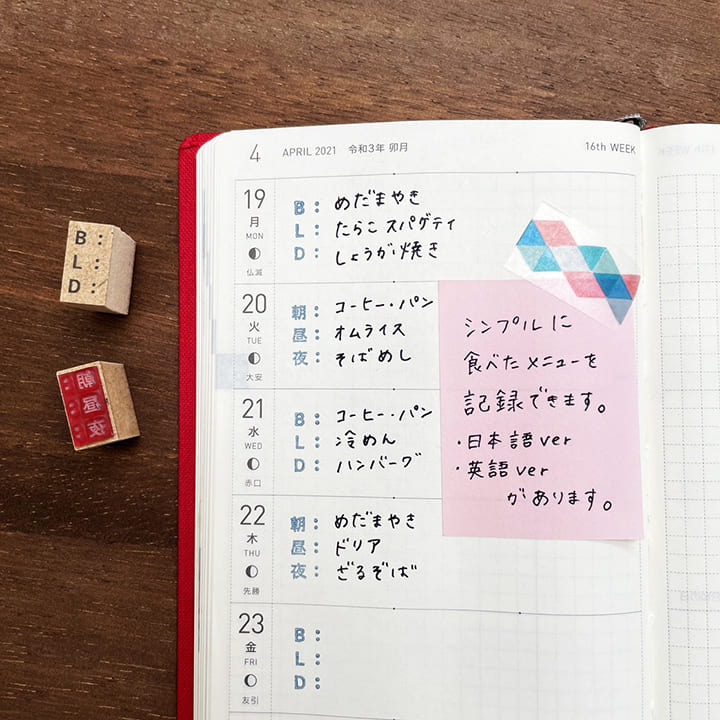 4 APRIL 2021 令和3年 卯月 16th WEEK
19
月
MON
仏滅
B: めだまやき
L: たらこスパゲティ
D: しょうが焼き
20
火
TUE
大安
朝: コーヒー・パン
昼: オムライス
夜: そばめし
21
水
WED
赤口
B: コーヒー・パン
L: 冷めん
D: ハンバーグ
22
木
THU
先勝
朝: めだまやき
昼: ドリア
夜: ざるそば
23
金
FRI
友引
B:
L:
D:
シンプルに
食べたメニューを
記録できます。
・日本語ver
・英語ver
があります。
B:
L:
D:
朝:
昼:
夜: